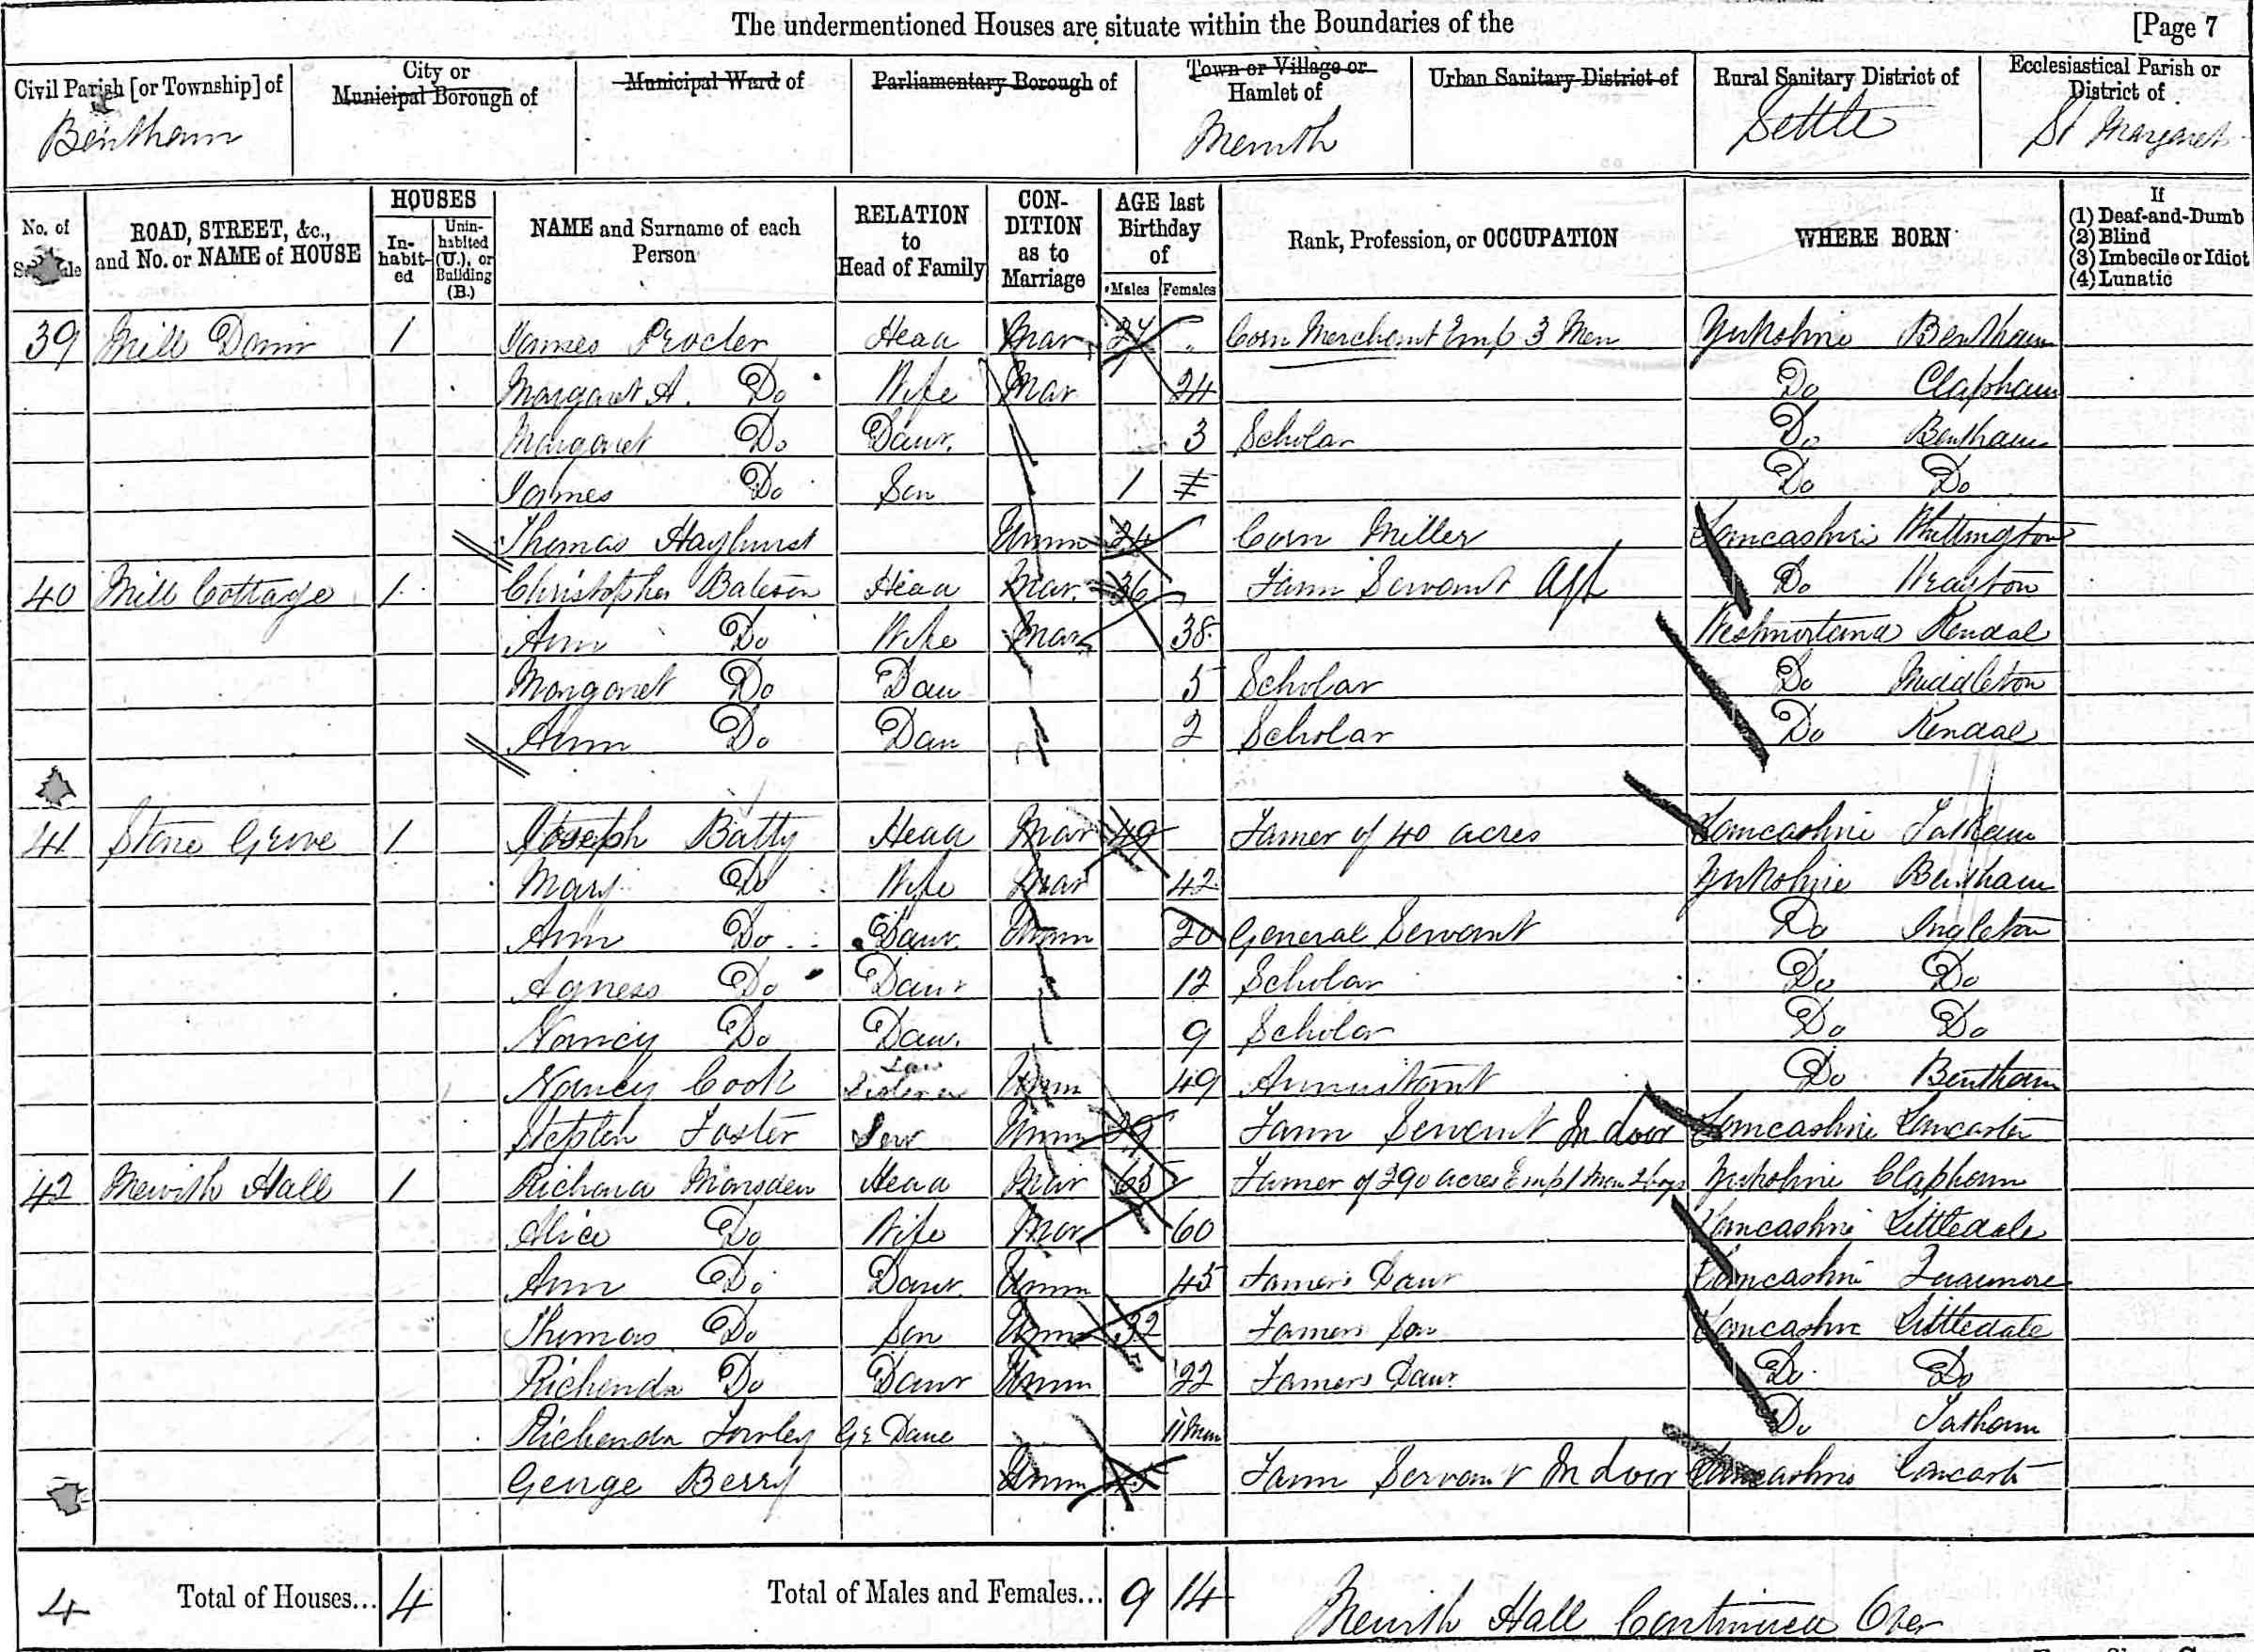 The undermentioned Houses are situate within the Boundaries of the [Page 7
Civil Parish [or Township] of
City or Municipal Borough of
Municipal Ward of
Parliamentary Borough of
Town or Village or Hamlet of
Urban Sanitary District of
Rural Sanitary District of
Ecclesiastical Parish or District of
Bentham Mewith Settle St Margaret
No. of Schedule
ROAD, STREET, &c., and No. or NAME of HOUSE
HOUSES
In-habit-ed
Unin-habited (U.), or Building (B.)
NAME and Surname of each Person
RELATION to Head of Family
CON-DITION as to Marriage
AGE last Birthday of
Males Females
Rank, Profession, or OCCUPATION
WHERE BORN
If
(1) Deaf-and-Dumb
(2) Blind
(3) Imbecile or Idiot
(4) Lunatic
39 Mill Dam 1 James Procter Head Mar 27 " Corn Merchant Emp 3 Men Yorkshire Bentham
Margaret A. Do Wife Mar 24 Do Clapham
Margaret Do Daur. 3 Scholar Do Bentham
James Do Son 1 Do Do
Thomas Hayhurst Unm 24 Corn Miller Lancashire Whittington
40 Mill Cottage 1 Christopher Bateson Head Mar. 36 Farm Servant Do Wrayton
Ann Do Wife Mar 38 Westmorland Kendal
Margaret Do Dau 5 Scholar Do Middleton
Ann Do Dau 2 Scholar Do Kendal
41 Stone Grove 1 Joseph Batty Head Mar 49 Farmer of 40 acres Lancashire Tatham
Mary Do Wife Mar 42 Yorkshire Bentham
Ann Do Daur Unm 20 General Servant Do Ingleton
Agness Do Daur 12 Scholar Do Do
Nancy Do Daur. 9 Scholar Do Do
Nancy Cook Sister in Law Unm 49 Annuitant Do Bentham
Stephen Foster Ser Unm Farm Servant In door Lancashire Lancaster
42 Mewith Hall 1 Richard Marsden Head Mar 65 Farmer of 290 acres Emp 1 Man 2 boys Yorkshire Clapham
Alice Do Wife Mar 60 Lancashire Littledale
Ann Do Daur Unm 45 Farmers Daur Lancashire Quarmore
Thomas Do Son Unm 32 Farmers Son Lancashire Littledale
Richenda Do Daur Unm 22 Farmers Daur Do Do
Richenda Towley Gr Daue 11 Mon Do Tatham
George Berry Unm Farm Servant In door Lancashire Lancaster
4 Total of Houses... 4 Total of Males and Females... 9 14 Mewith Hall Continued Over